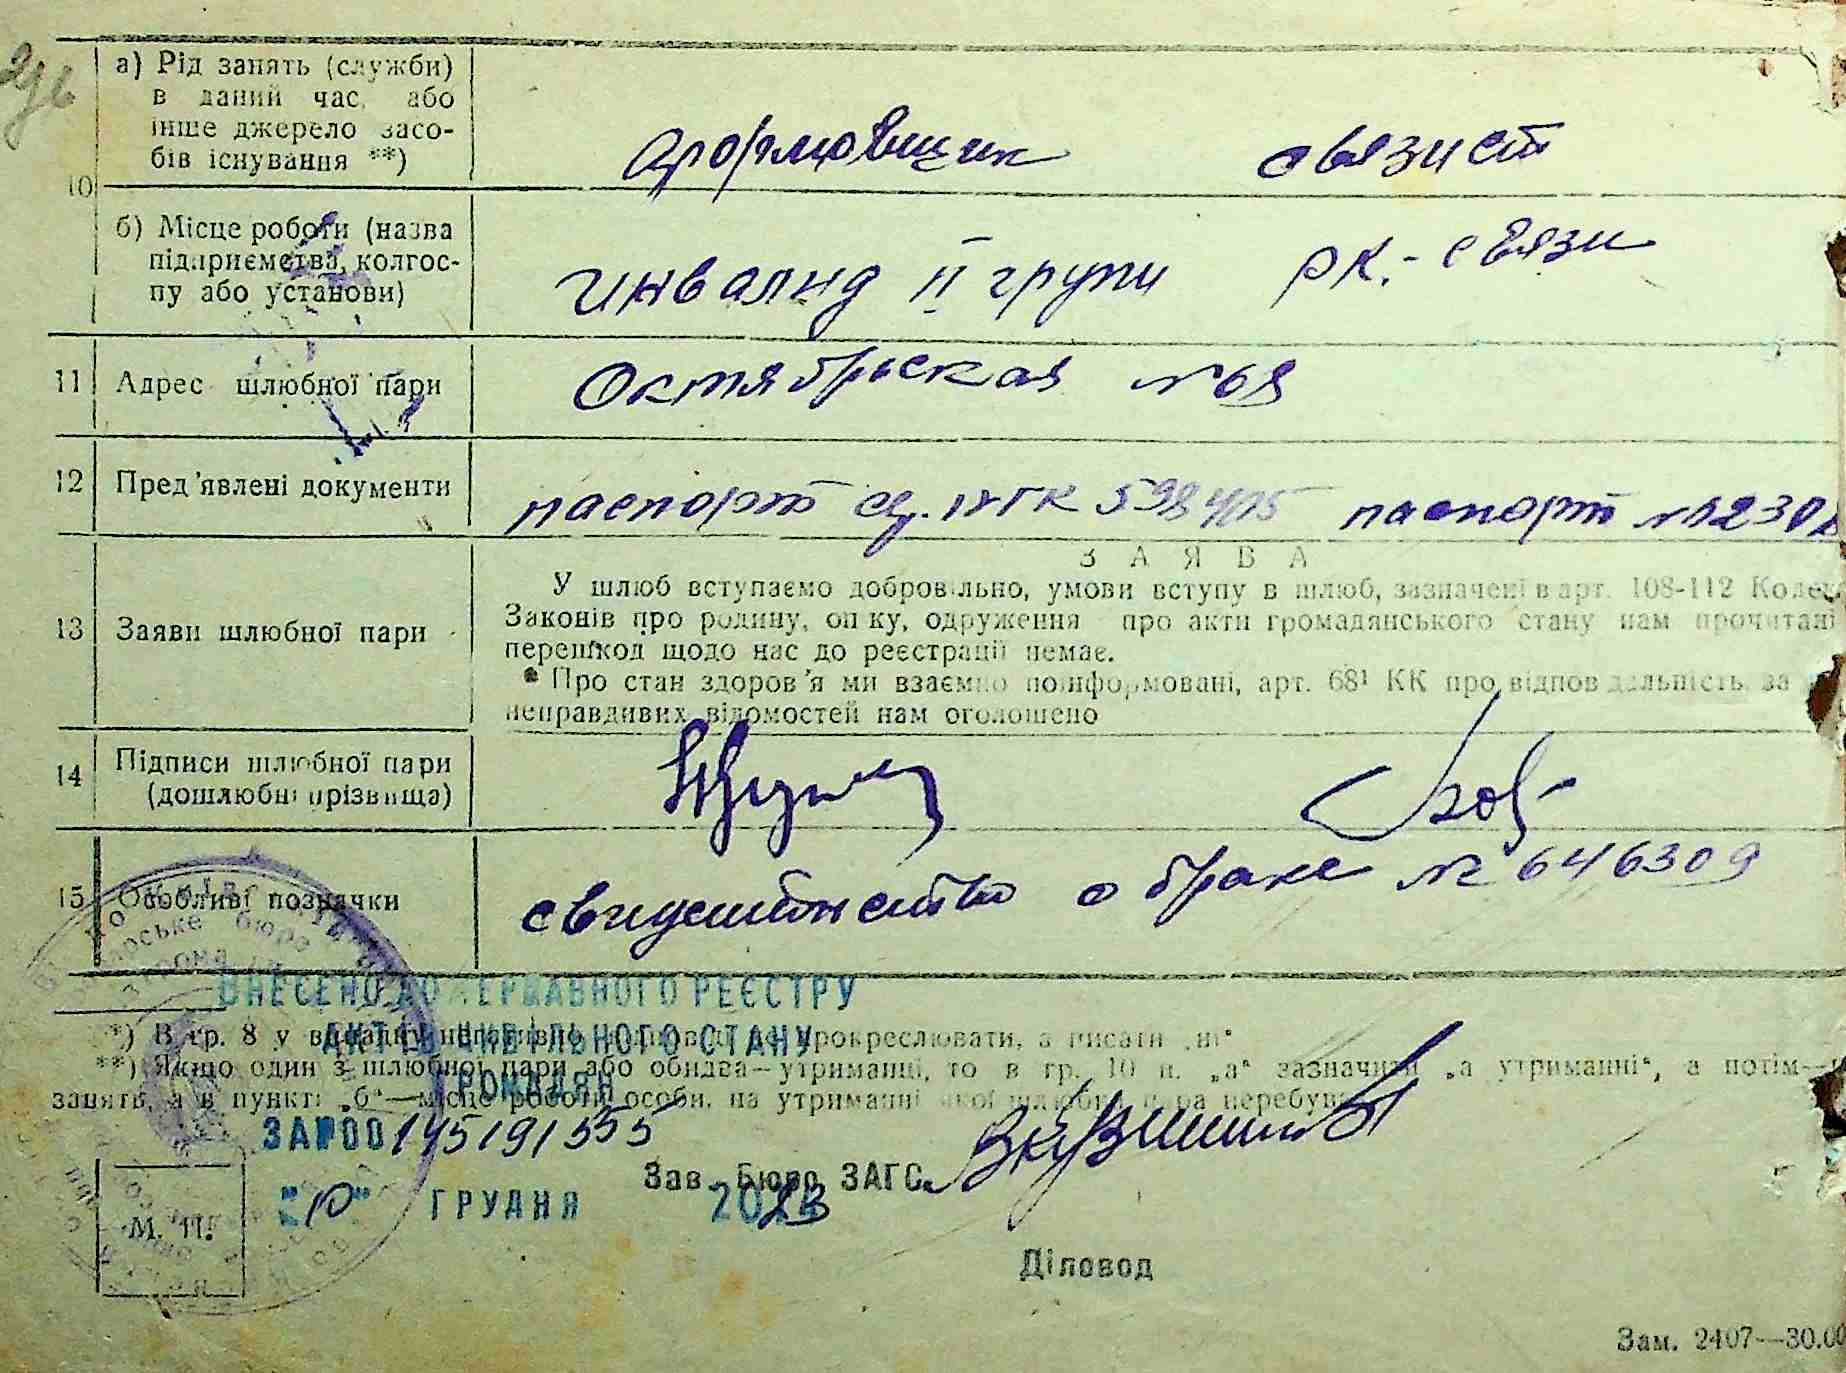 10
а) Рід занять (служби)
в даний час, або
інше джерело засо-
бів існування **)
формовщик связист
б) Місце роботи (назва
підприємства, колгос-
пу або установи)
инвалид II групи рк.-связи
11 Адрес шлюбної пари Октябрьская №
12 Пред'явлені документи паспорт 598415 паспорт №
ЗАЯВА
У шлюб вступаємо добровільно, умови вступу в шлюб, зазначені в арт. 108-112 Кодек
Законів про родину, опіку, одруження про акти громадянського стану нам прочитані
13 Заяви шлюбної пари
перешкод щодо нас до реєстрації немає.
* Про стан здоров'я ми взаємно поінформовані, арт. 68¹ КК про відповідальність за
неправдивих відомостей нам оголошено
14 Підписи шлюбної пари
(дошлюбні прізвища)
15 Особливі позначки свидетельство о браке № 646309
ВНЕСЕНО ДО ДЕРЖАВНОГО РЕЄСТРУ
АКТІВ ЦИВІЛЬНОГО СТАНУ
*) В гр. 8 у випадку негативної відповіді не прокреслювати, а писати „ні“
**) Якщо один з шлюбної пари або обидва—утриманці, то в гр. 10 п. „а“ зазначити „а утриманні“, а потім—
ГРОМАДЯН
занять, а в пункті „б“—місце роботи особи, на утриманні якої шлюбна пара перебуває
ЗА №00145191555
Зав. Бюро ЗАГС.
"10" ГРУДНЯ 2023
М. П.
Діловод
Зам. 2407—30.00